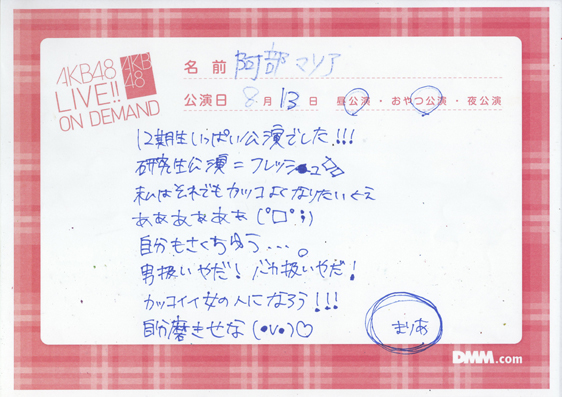 AKB48
LIVE!!
ON DEMAND
AKB
48
名前 阿部マリア
公演日 8月13日 昼公演・おやつ公演・夜公演
12期生いっぱい公演でした!!!
研究生公演=フレッシュ
私はそれでもカッコよくなりたいぐぇ
あぁぁぁぁぁ(°□°;)
自分もさくちゅう...。
男扱いやだ!バカ扱いやだ!
カッコイイ女の人になろう!!!
自分磨きせな(•v•)♡
まりあ
DMM.com